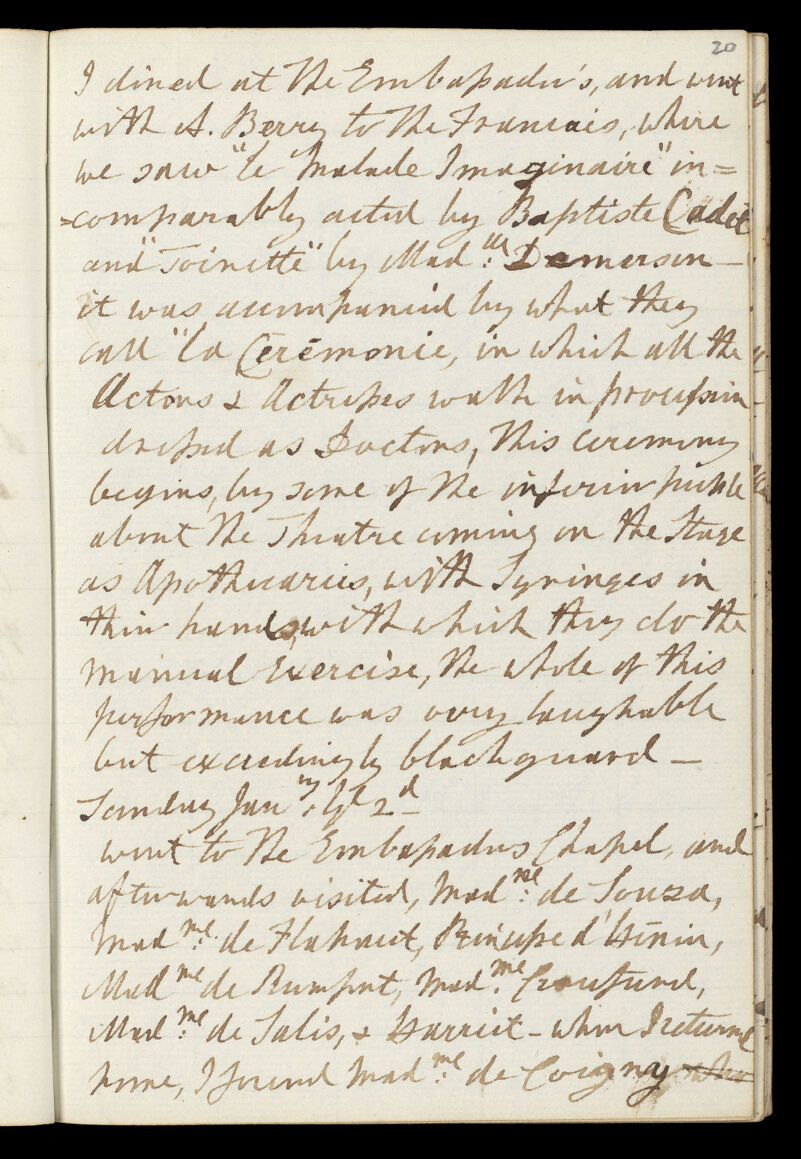 20
I dined at the Embassador's, and went
with A. Berry to the Francais, where
we saw "le Malade Imaginaire" in=
=comparably acted by Baptiste Cadet
and "Toinette" by Mad.lle Demerson —
it was accompanied by what they
call "la Cérémonie, in which all the
Actors & Actresses walk in procession
dressed as Doctors, this ceremony
begins, by some of the inferior people
about the Theatre coming on the Stage
as Apothecaries, with Syringes in
their hands, with which they do the
manual Exercise, the whole of this
performance was very laughable
but exceedingly blackguard —
Sunday Jan.ry ye 2d
went to the Embassadors Chapel, and
afterwards visited, Mad.me de Souza,
Mad.me de Flahaut, Princesse d'Hénin,
Mad.me de Rumfort, Mad.me Craufurd,
Mad.me de Salis, & Harriet — when I returned
home, I found Mad.me de Coigny